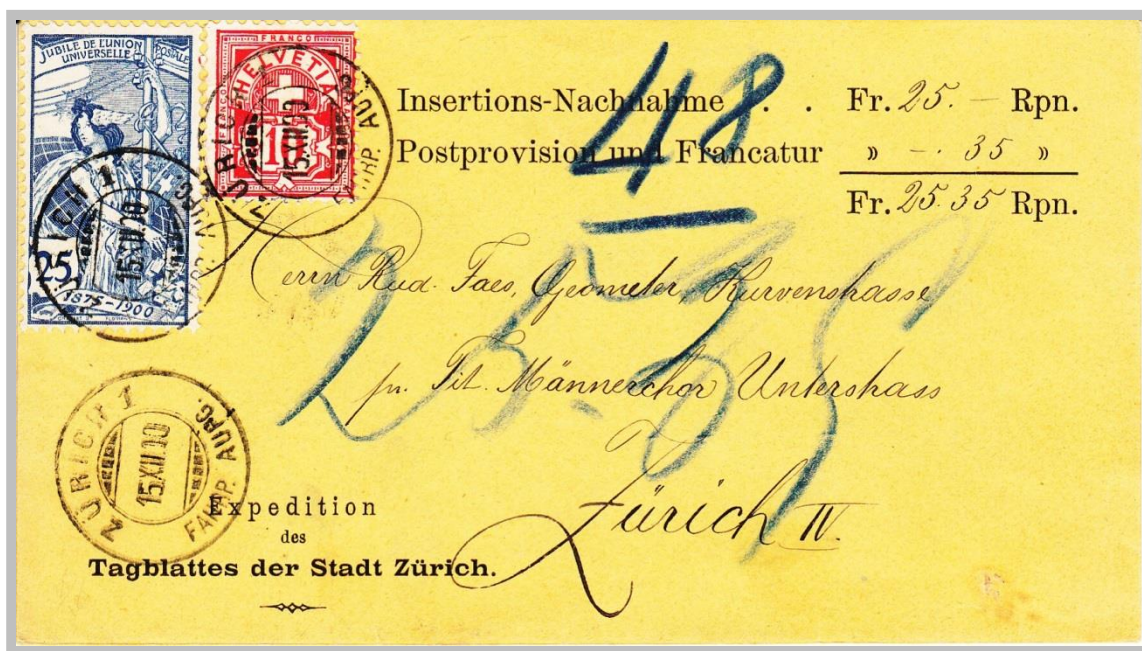 JUBILÉ DE L'UNION
POSTALE
UNIVERSELLE
25
1875-1900
FRANCO
HELVETIA
10
ZÜRICH 1
15.XII.00
ZÜRICH 1
15.XII.00
FAHRP. AUFG.
48
Insertions-Nachnahme . . Fr. 25. — Rpn.
Postprovision und Francatur » —. 35 »
Fr. 25.35 Rpn.
25.35
Herrn Rud. Faes, Geometer, Kurvenstrasse
pr. Tit. Männerchor Unterstrass
Zürich IV.
ZÜRICH 1
15.XII.00
FAHRP. AUFG.
Expedition
des
Tagblattes der Stadt Zürich.